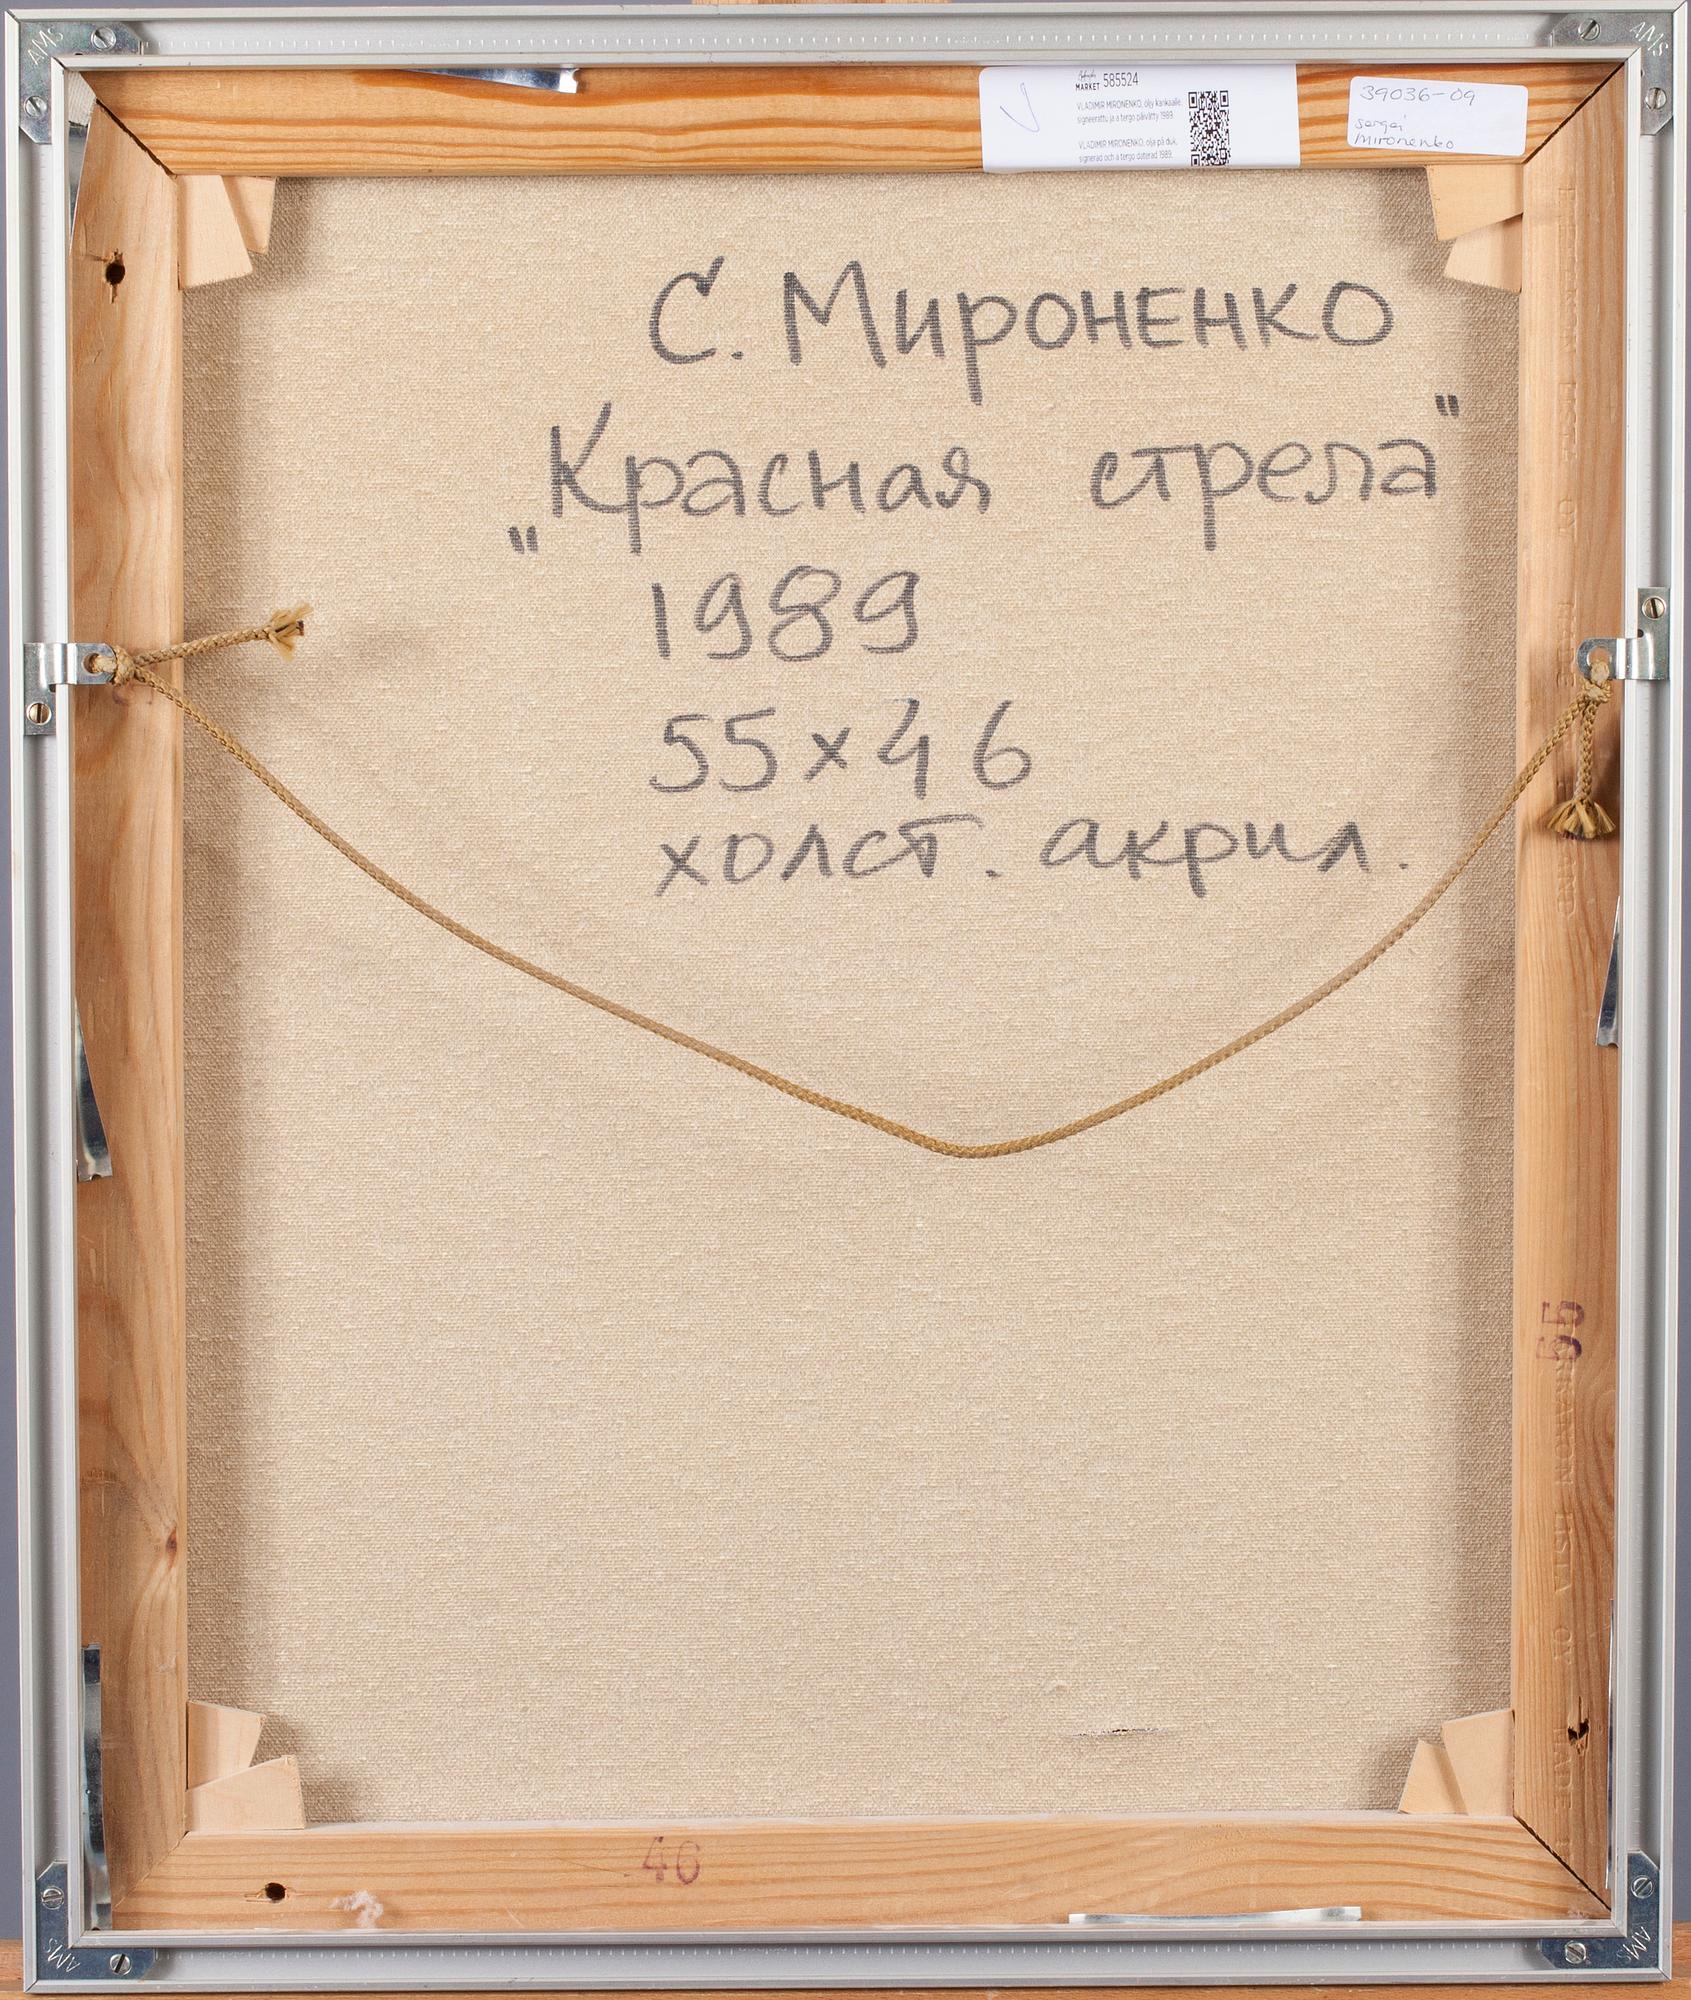 AMS
AMS
MARKET 585524
VLADIMIR MIRONENKO, öljy kankaalle,
signeerattu ja a tergo päivätty 1989.
VLADIMIR MIRONENKO, olja på duk,
signerad och a tergo daterad 1989.
39036-09
sergei
mironenko
С. Мироненко
„Красная стрела"
1989
55×46
холст. акрил.
55
46
AMS
AMS